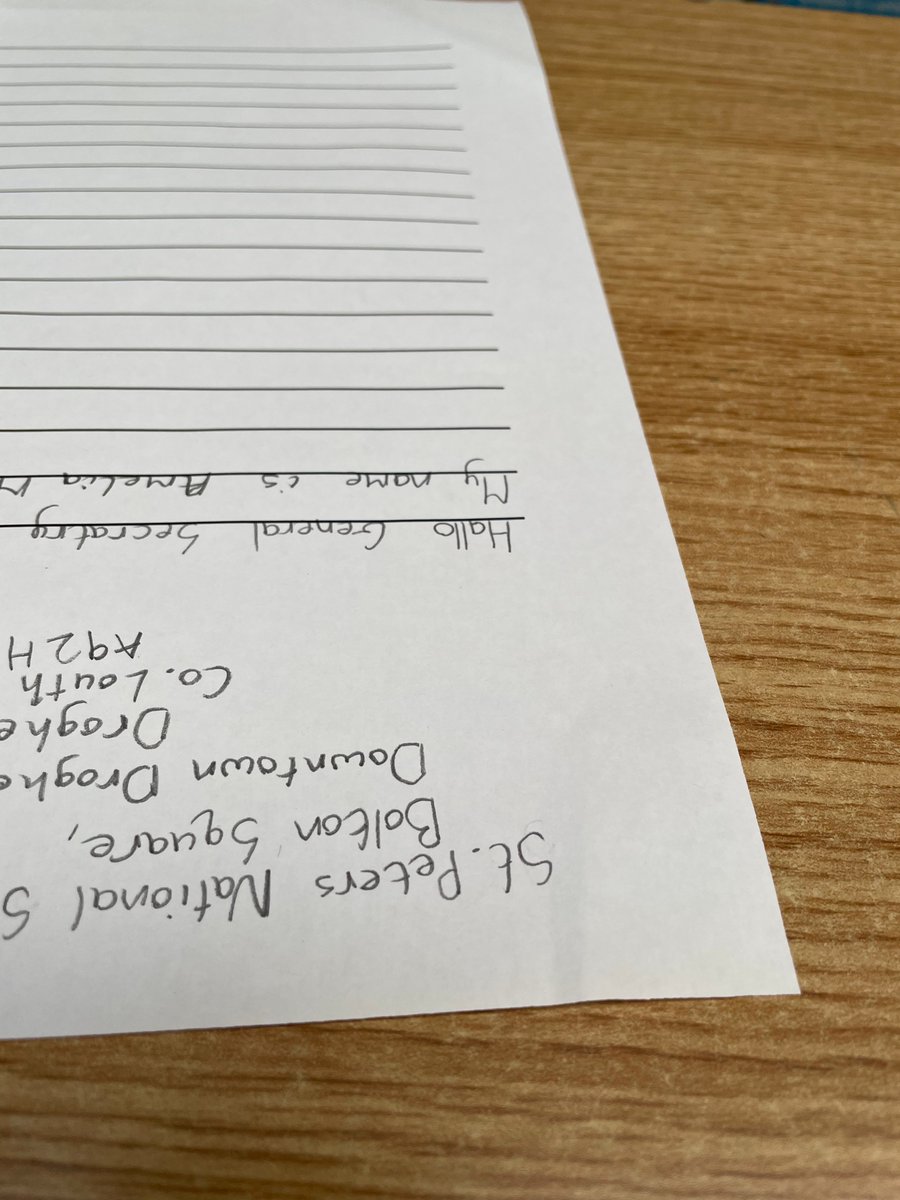 St. Peters National S
Bolton Square,
Downtown Droghe
Droghe
Co. Louth
A92 H
Hallo General Secratry
My name is Amelia